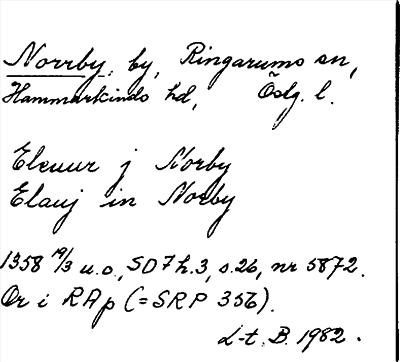 Norrby, by, Ringarums sn,
Hammarkinds hd, Östg. l.
Eleuur j Norby
Elauj in Norby
1358 19/3 u.o., SD 7 h.3, s.26, nr 5872.
Or i RAp (=SRP 356).
L-t, B. 1982.